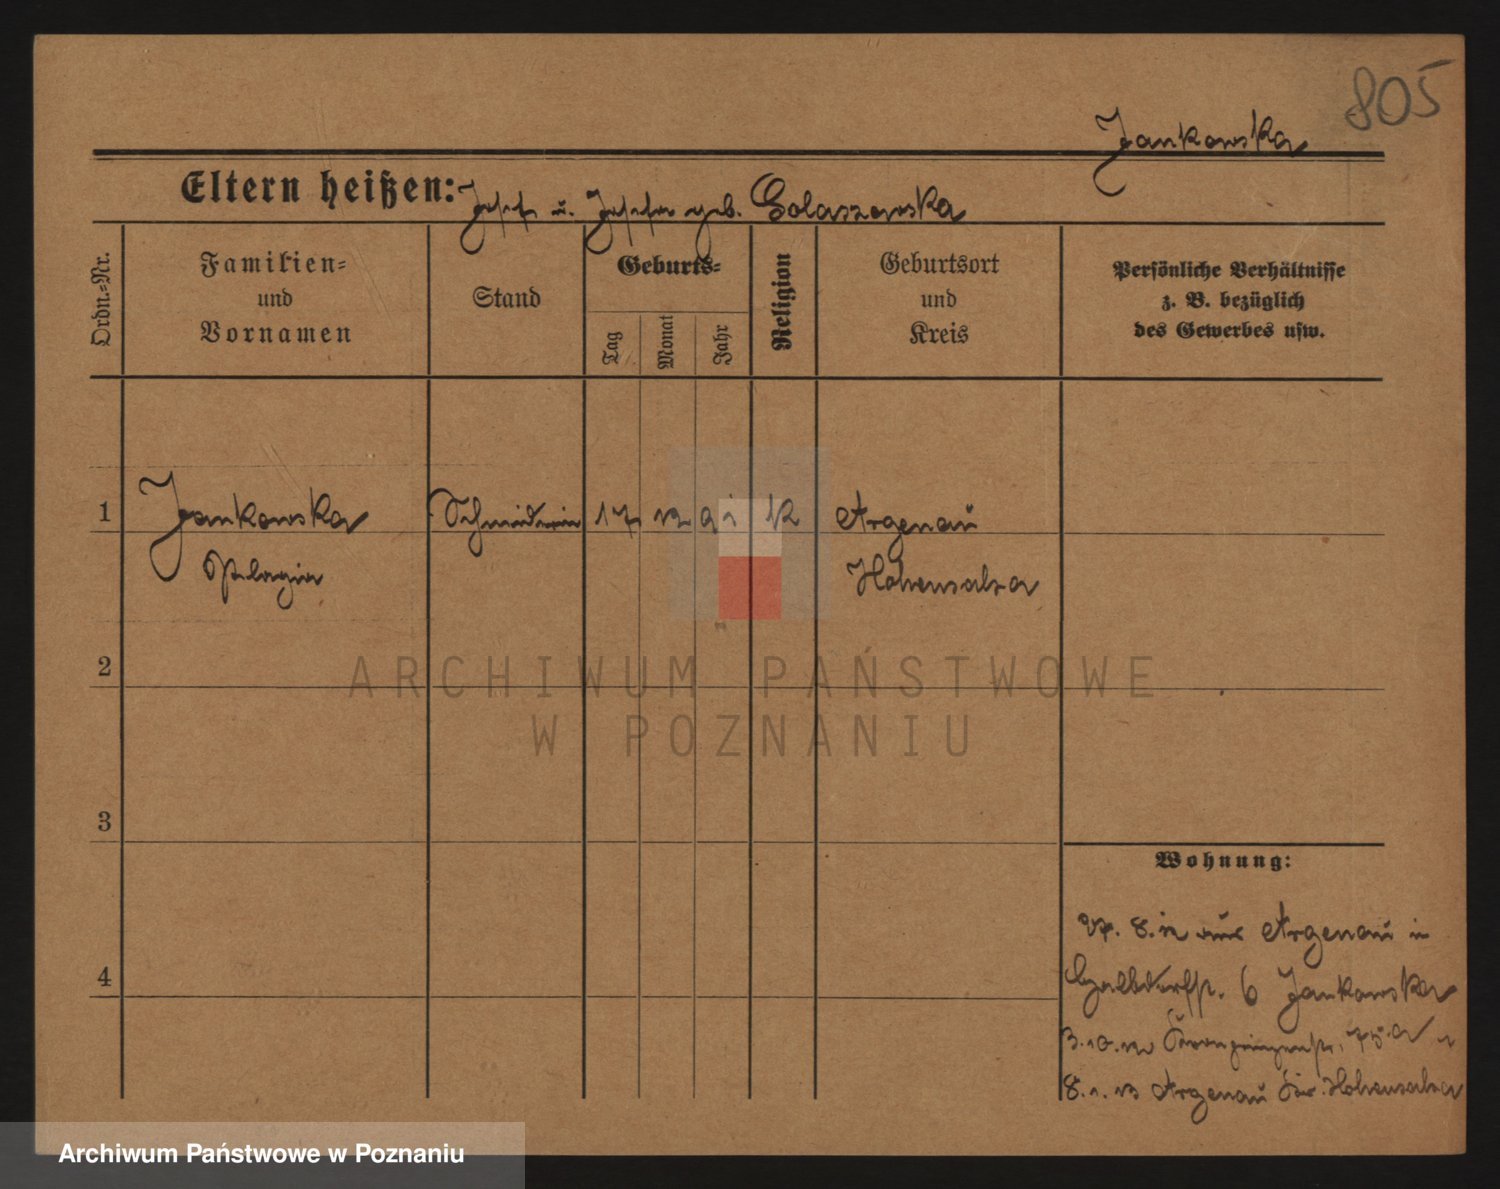 805
Jankowska
Eltern heißen: Josef u. Josefa geb. Golaszewska
Ordn.-Nr.
Familien-
und
Vornamen
Stand
Geburts-
Tag
Monat
Jahr
Religion
Geburtsort
und
Kreis
Persönliche Verhältnisse
z. B. bezüglich
des Gewerbes usw.
1 Jankowska Schneiderin 17 12 91 K Argenau
Pelagia Hohensalza
2
3
4
Wohnung:
27. 8. 12 aus Argenau in
6 Jankowska
3.10.12 Kronprinzenstr. 75a
8.1.13 Argenau Kr. Hohensalza
ARCHIWUM PAŃSTWOWE
W POZNANIU
Archiwum Państwowe w Poznaniu